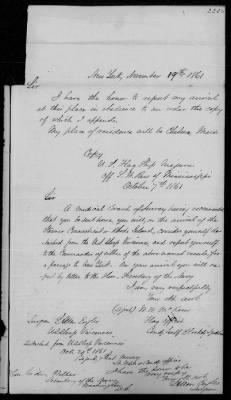 New York, November 19th 1861
Sir
I have the honor to report my arrival
at this place in obedience to an order the copy
of which I append.
My place of residence will be Chelsea, Mass
Copy
U. S. Flag Ship
off S. W. Pass of Mississippi
October 7th 1861
Sir
A medical board of survey having recommended
that you be sent home, you will, on the arrival of the
Steamer Connecticut or Rhode Island, consider yourself de-
tached from the U.S. Sloop Vincennes, and report yourself
to the Commander of either of the above named vessels, for
a passage to New York. On your arrival you will re-
port by letter to the Hon. Secretary of the Navy
I am very respectfully
Your Ob. Servt
(Signed) W. W. McKean
Flag Officer
Surgeon
U.S. Sloop Vincennes
Detached from U.S. Sloop Vincennes
Hon. Gideon Welles
Secretary of the Navy
Washington
D.C.
I have the honor to be
Surgeon